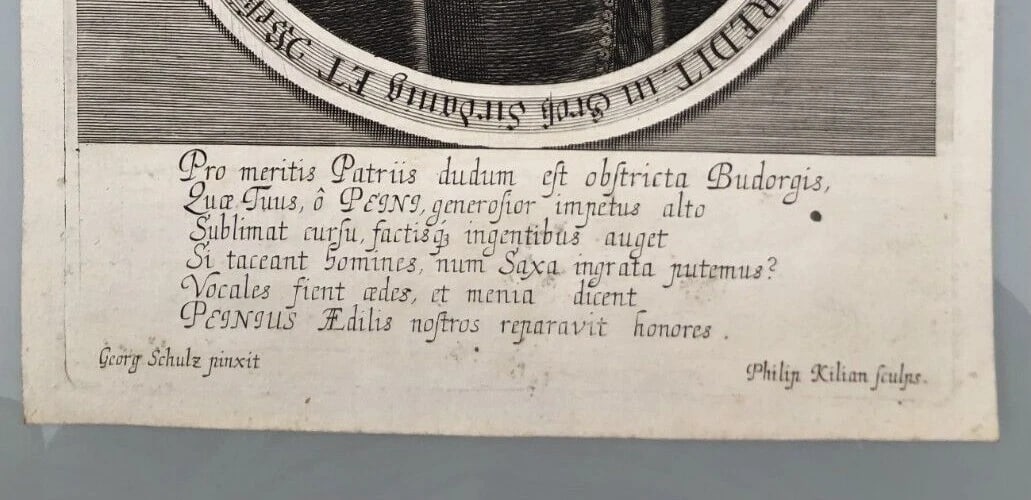 REDIT. in Groß ET
Pro meritis Patriis dudum eſt obſtricta Budorgis,
Quæ Tuus, ô PEINI, generoſior impetus alto
Sublimat curſu, factisqꝫ ingentibus auget
Si taceant homines, num Saxa ingrata putemus?
Vocales fient ædes, et menia dicent
PEINIUS Ædilis noſtros reparavit honores.
Georg Schulz pinxit
Philip Kilian ſculps.